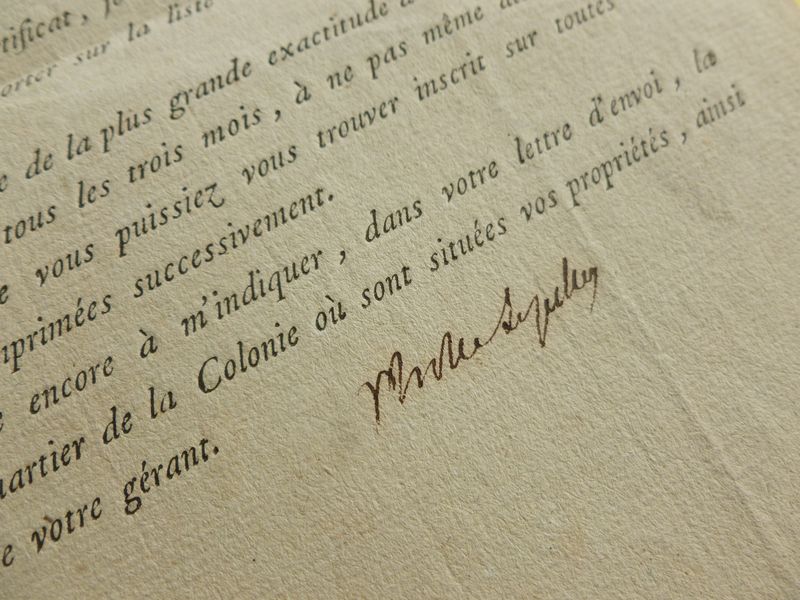 tificat, je
orter sur la liste
e de la plus grande exactitude à
tous les trois mois, à ne pas même
e vous puissiez vous trouver inscrit sur toutes
mprimées successivement.
e encore à m'indiquer, dans votre lettre d'envoi, la
uartier de la Colonie où sont situées vos propriétés, ainsi
e votre gérant.